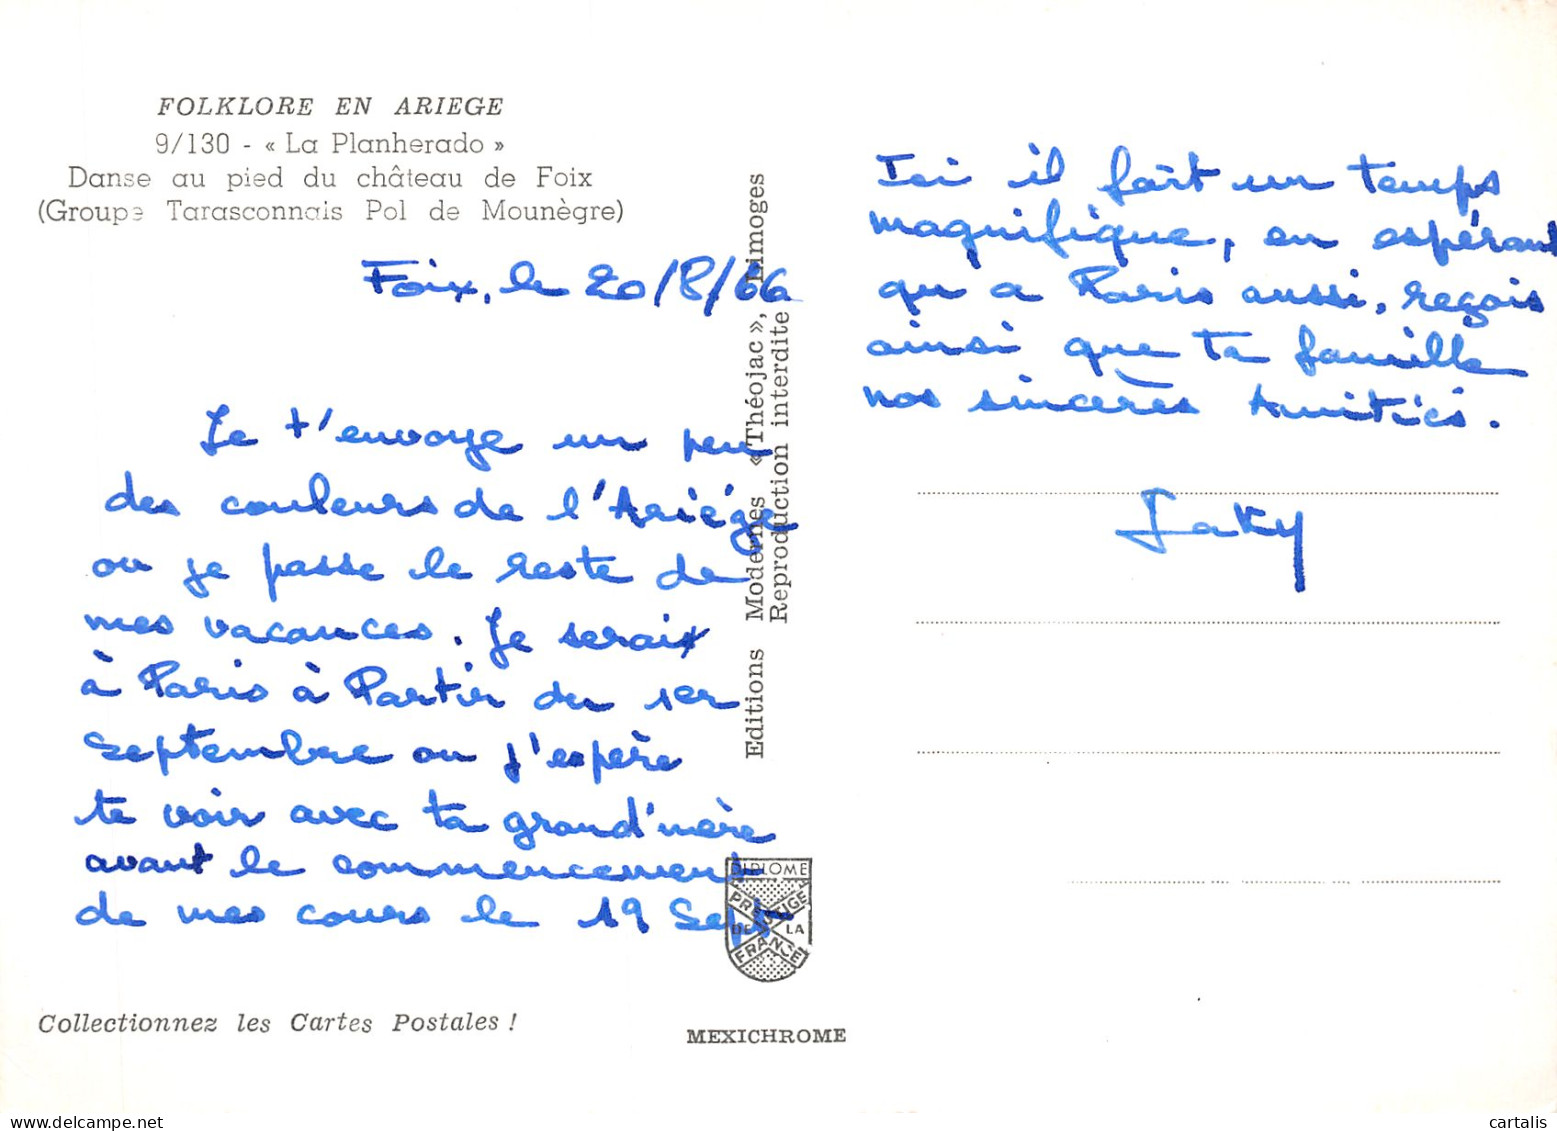 FOLKLORE EN ARIEGE
9/130 - « La Planherado »
Danse au pied du château de Foix
(Groupe Tarasconnais Pol de Mounègre)
Foix, le 20/8/66
Je t'envoye un peu
des couleurs de l'Ariége
ou je passe le reste de
mes vacances. Je serais
à Paris à Partir du 1er
Septembre ou j'espère
te voir avec ta grand'mère
avant le commencement
de mes cours le 19 Sept
Collectionnez les Cartes Postales !
Editions Modernes «Théojac», Limoges
Reproduction interdite
DIPLOME
PRESTIGE
DE LA
FRANCE
MEXICHROME
Ici il fait un temps
magnifique, en espérant
qu a Paris aussi, reçois
ainsi que ta famille
nos sincères Amitiés.
Jaky
cartalis